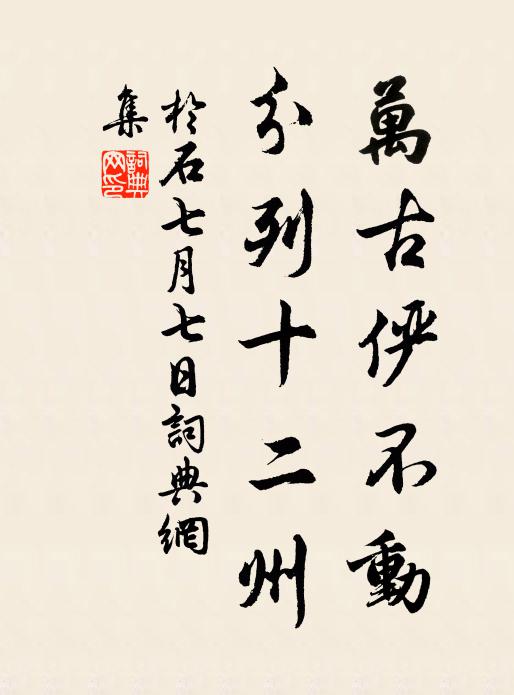 萬古儼不動
分列十二州
於石七月七日詞典網
集
詞典網印